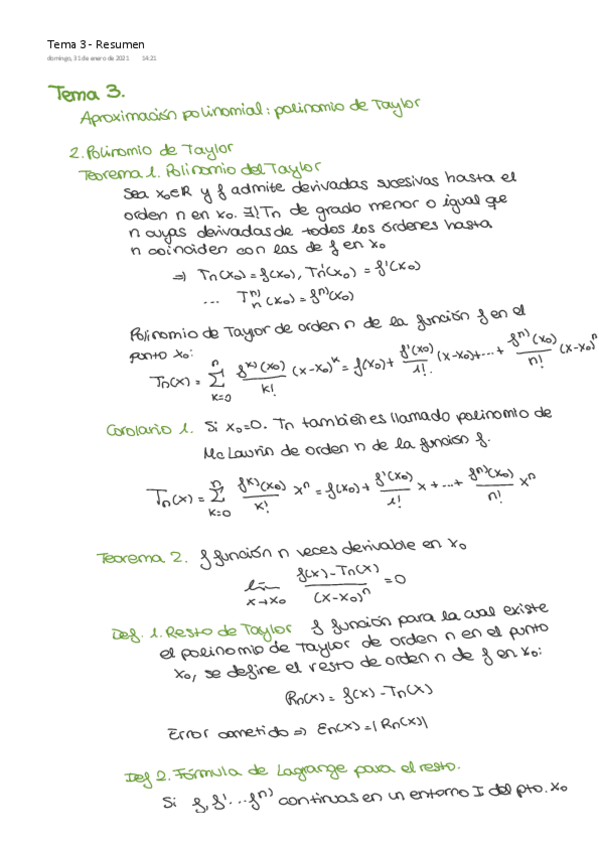 Tema 3 - Resumen
domingo, 31 de enero de 2021 14:21
Tema 3.
Aproximación polinomial: polinomio de Taylor
2. Polinomio de Taylor
Teorema 1. Polinomio del Taylor
Sea x₀∈R y f admite derivadas sucesivas hasta el
orden n en x₀. ∃! Tn de grado menor o igual que
n cuyas derivadas de todos los órdenes hasta
n coinciden con las de f en x₀
⇒ Tn(x₀) = f(x₀), Tn'(x₀) = f'(x₀)
... Tₙⁿ⁾(x₀) = fⁿ⁾(x₀)
Polinomio de Taylor de orden n de la función f en el
punto x₀:
Tn(x) = Σ_{k=0}^{n} fᵏ⁾(x₀)/k! (x-x₀)ᵏ = f(x₀) + f'(x₀)/1! (x-x₀) + ... + fⁿ⁾(x₀)/n! (x-x₀)ⁿ
Corolario 1. Si x₀=0. Tn también es llamado polinomio de
Mc Laurin de orden n de la función f.
Tn(x) = Σ_{k=0}^{n} fᵏ⁾(x₀)/k! xⁿ = f(x₀) + f'(x₀)/1! x + ... + fⁿ⁾(x₀)/n! xⁿ
Teorema 2. f función n veces derivable en x₀
lim_{x→x₀} (f(x) - Tn(x))/(x-x₀)ⁿ = 0
Def. 1. Resto de Taylor f función para la cual existe
el polinomio de Taylor de orden n en el punto
x₀, se define el resto de orden n de f en x₀:
Rn(x) = f(x) - Tn(x)
Error cometido ⇒ En(x) = |Rn(x)|
Def 2. Fórmula de Lagrange para el resto.
Si f, f' ... fⁿ⁾ continuas en un entorno I del pto. x₀